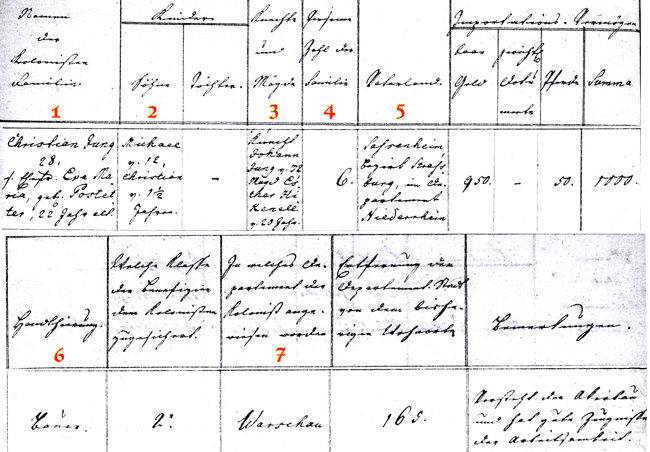 Namen
der
Kolonisten
Familie.
1
Kinder
Söhne
Töchter.
2
Knechte
und
Mägde
3
Personen
Zahl der
Familie
4
Vaterland.
5
Importations-Vermögen
baar
Geld
Pferde
Summa
Christian Jung
28,
Eva Ma
ria, geb. Postet
ter, 22 Jahr alt
Michael
v. 12,
Christian
v. 1½
Jahren.
–
Knecht
Johann
Jung v.
Magd
v. 20 Jahr.
6.
Bezirk Stras
burg, in De
partement
Niederrhein
950.
–
50.
1100.
Handthierung.
6
Welche Klasse
der Benefizien
dem Kolonisten
zugesichert.
In welches De
partement der
Kolonist ange
wiesen worden
7
Entfernung der
Departement Stadt
von dem bishe
rigen Wohnorte
Bemerkungen.
Bauer.
2.
Warschau
165.
Versteht den Akerbau
und hat gute Zeugnisse
der Arbeitsamkeit.